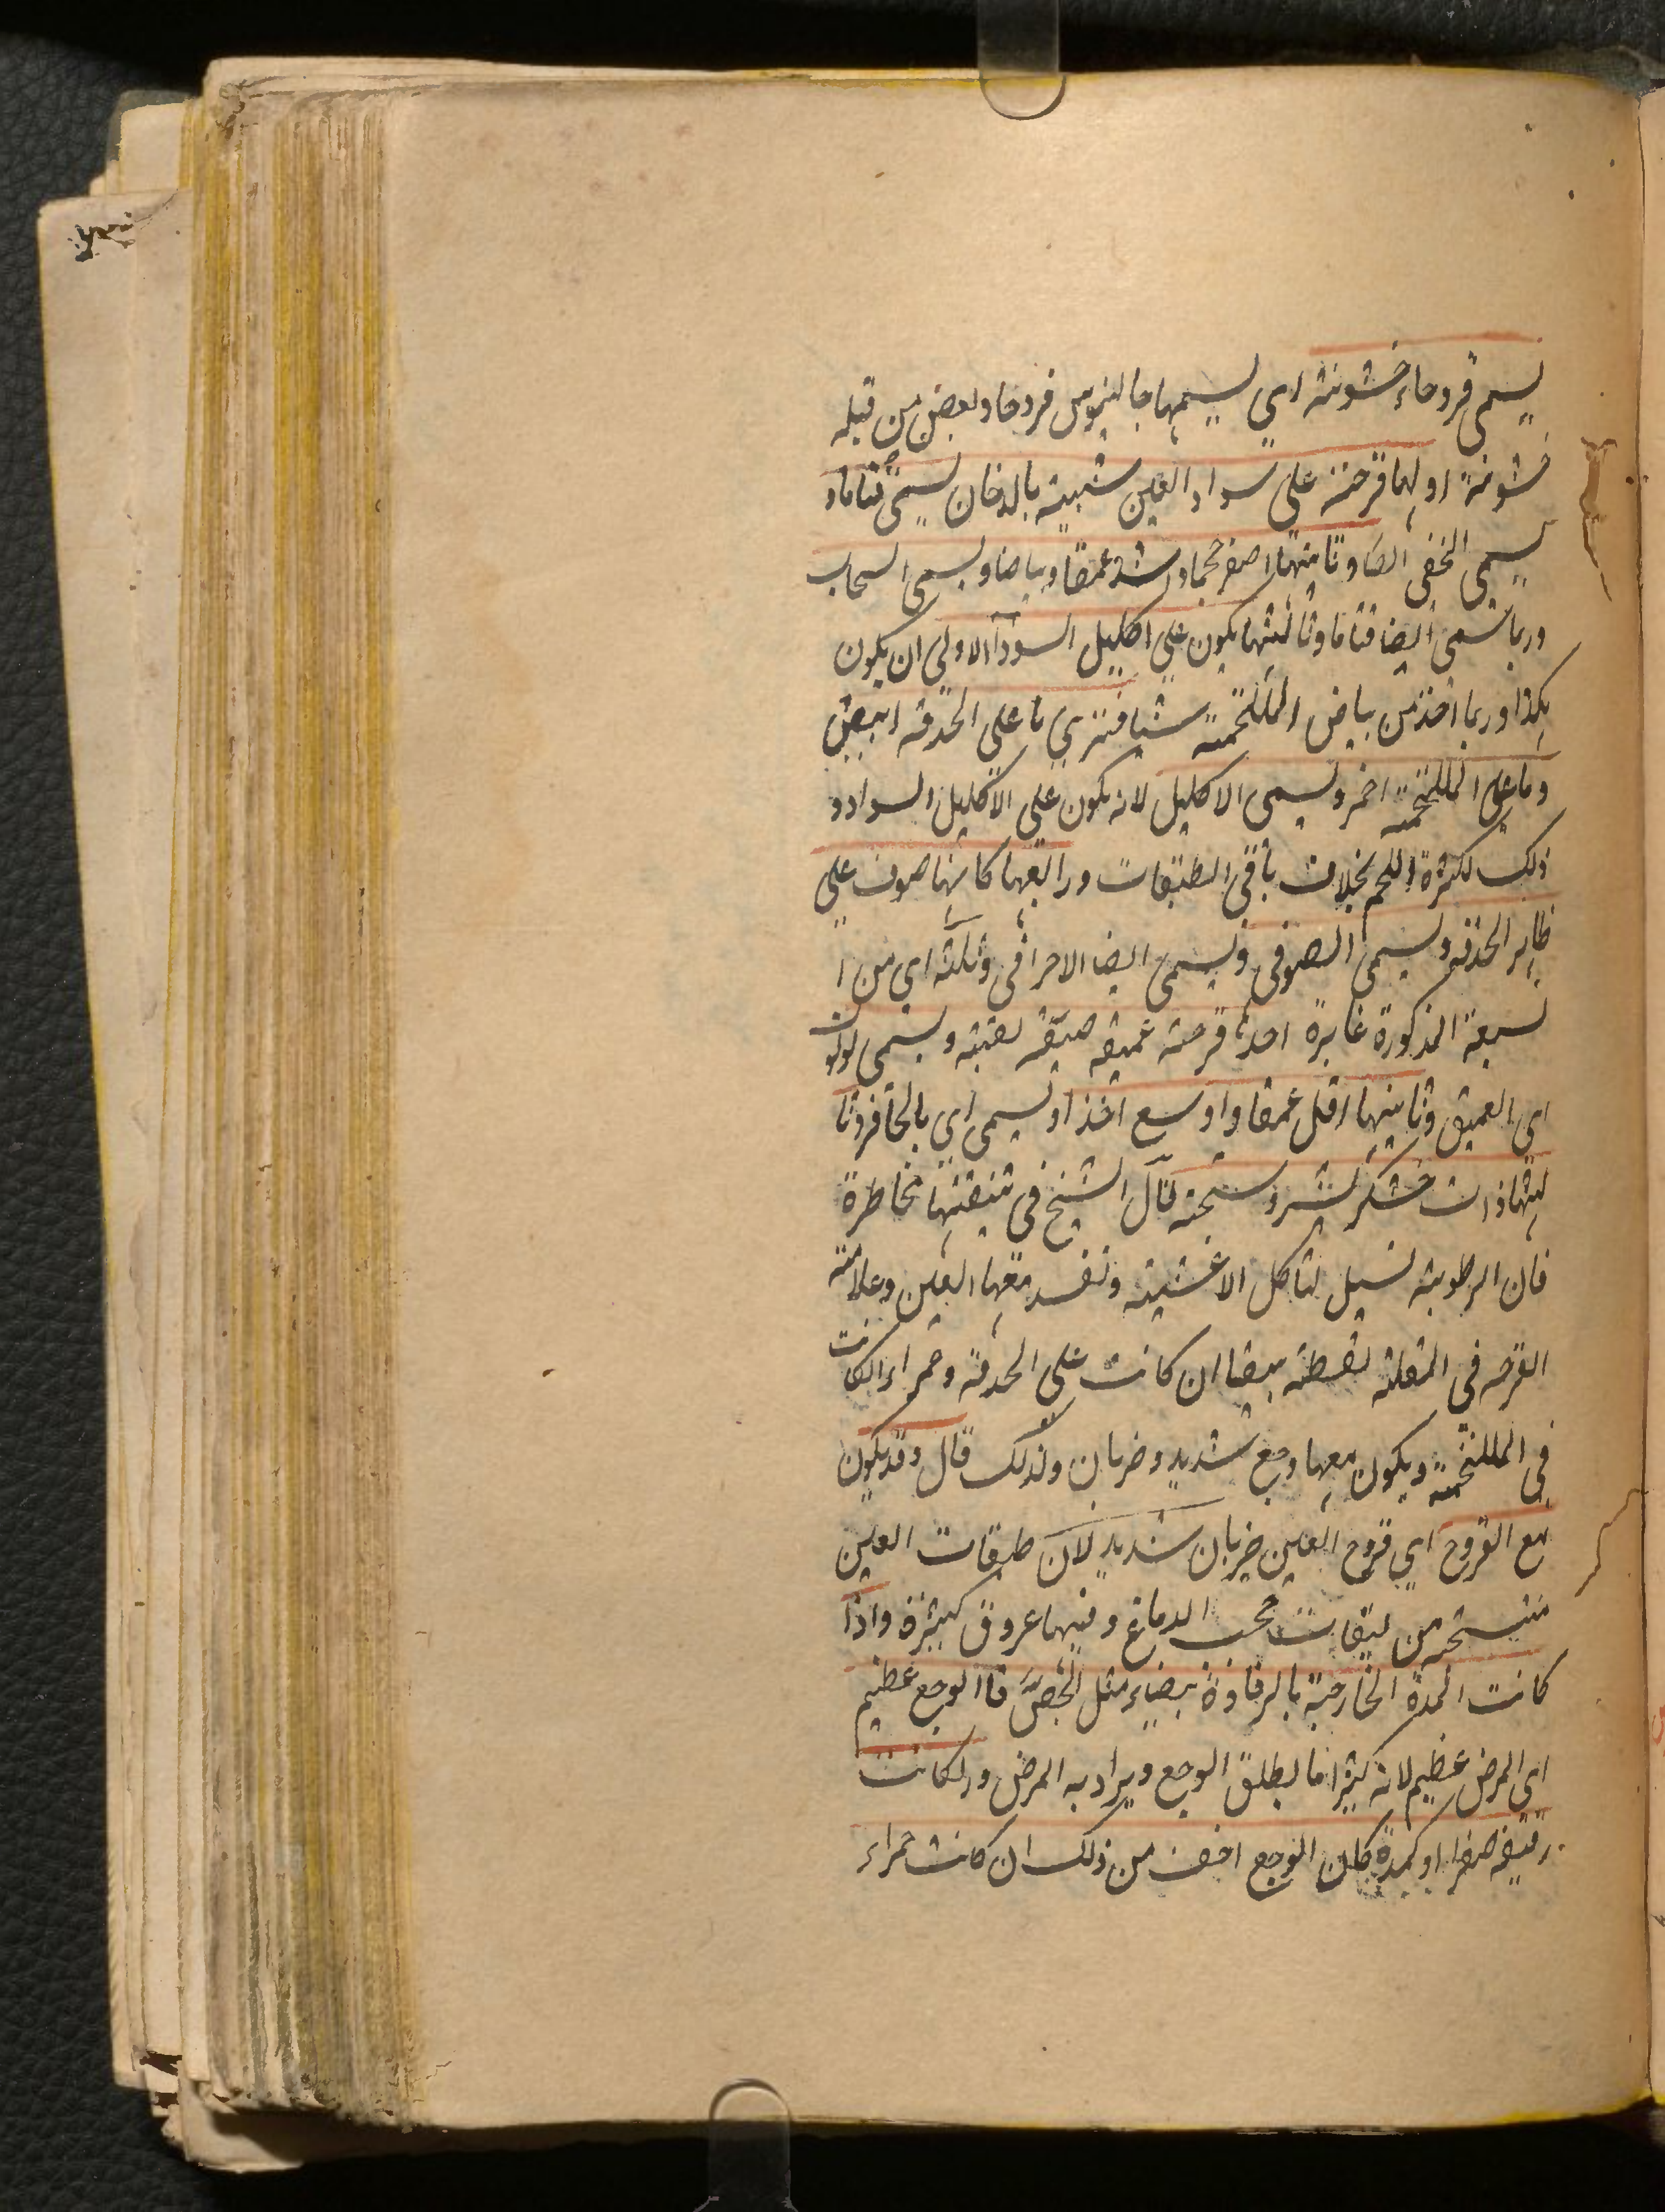 يسمى قروحا وخشونة اي يسميها جالينوس قروحا وبعض من قبله
خشونة اولها قرحة على سواد العين شبيه بالدخان يسمى قتاما و
يسمى الخفى ايضا وثانيتها اصغر حجما واشد عمقا وبياضا ويسمى السحاب
وربما سمى ايضا قتاما وثالثتها يكون على اكليل السواد الاولى ان يكون
هكذا وربما اخذ من بياض الملتحمة شيا فترى ما على الحدقة ابيض
وما على الملتحمة احمر ويسمى الاكليل لانه يكون على الاكليل السواد و
ذلك لكثرة اللحم بخلاف باقى الطبقات ورابعها كانها صوف على
ظاهر الحدقة ويسمى الصوفى ويسمى ايضا الاحراقى وثلثة اي من ا
لسبعة المذكورة غايرة احدها قرحة عميقة ضيقة نقية ويسمى لولو
اى العميق وثانيتها اقل عمقا واوسع اخذا ويسمى اي بالحافر وثا
لثتها ذات خشكريشة وسخة قال الشيخ فى تنقيتها مخاطرة
فان الرطوبة تسيل لتاكل الاغشية وتفسد معها العين وعلامة
القرحه فى المقلة نقطة بيضا ان كانت على الحدقة وحمراء ان كانت
فى الملتحمة ويكون معها وجع شديد وضربان ولذلك قال وقد يكون
مع القروح اي قروح العين ضربان شديد لان طبقات العين
منتسجة من ليفات حجب الدماغ وفيها عروق كثيرة واذا
كانت المدة الخارجة بالرفادة بيضاء مثل الجص فاالوجع عظيم
اى المرض عظيم لانه كثيرا ما يطلق الوجع ويراد به المرض وان كانت
رقيقة صفرا او كمدة كان الوجع اخف من ذلك ان كانت حمراء